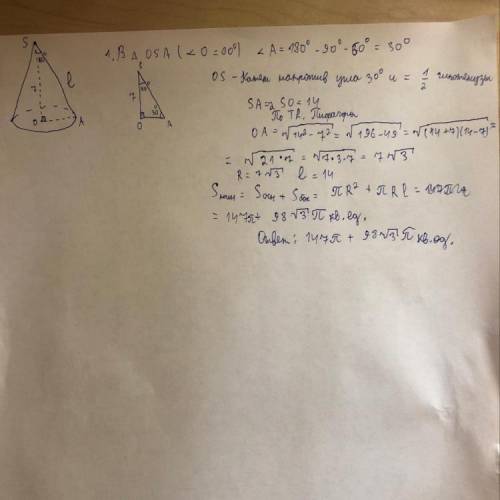 1, В △ OSA (∠O = 90°) ∠A = 180° - 90° - 60° = 30°
S
60°
7
l
O
A
S
60
7
30
O
A
OS - Катет напротив угла 30° и = 1/2 гипотенузы
SA = 2 SO = 14
По Th. Пифагора
OA = √14² - 7² = √196 - 49 = √(14 + 7)(14 - 7) =
= √21 • 7 = √7 • 3 • 7 = 7√3
R = 7√3 l = 14
= Sосн + Sбок = πR² + πRl = 147π +
= 147π + 98√3 π кв. ед.
Ответ: 147π + 98√3 π кв. ед.